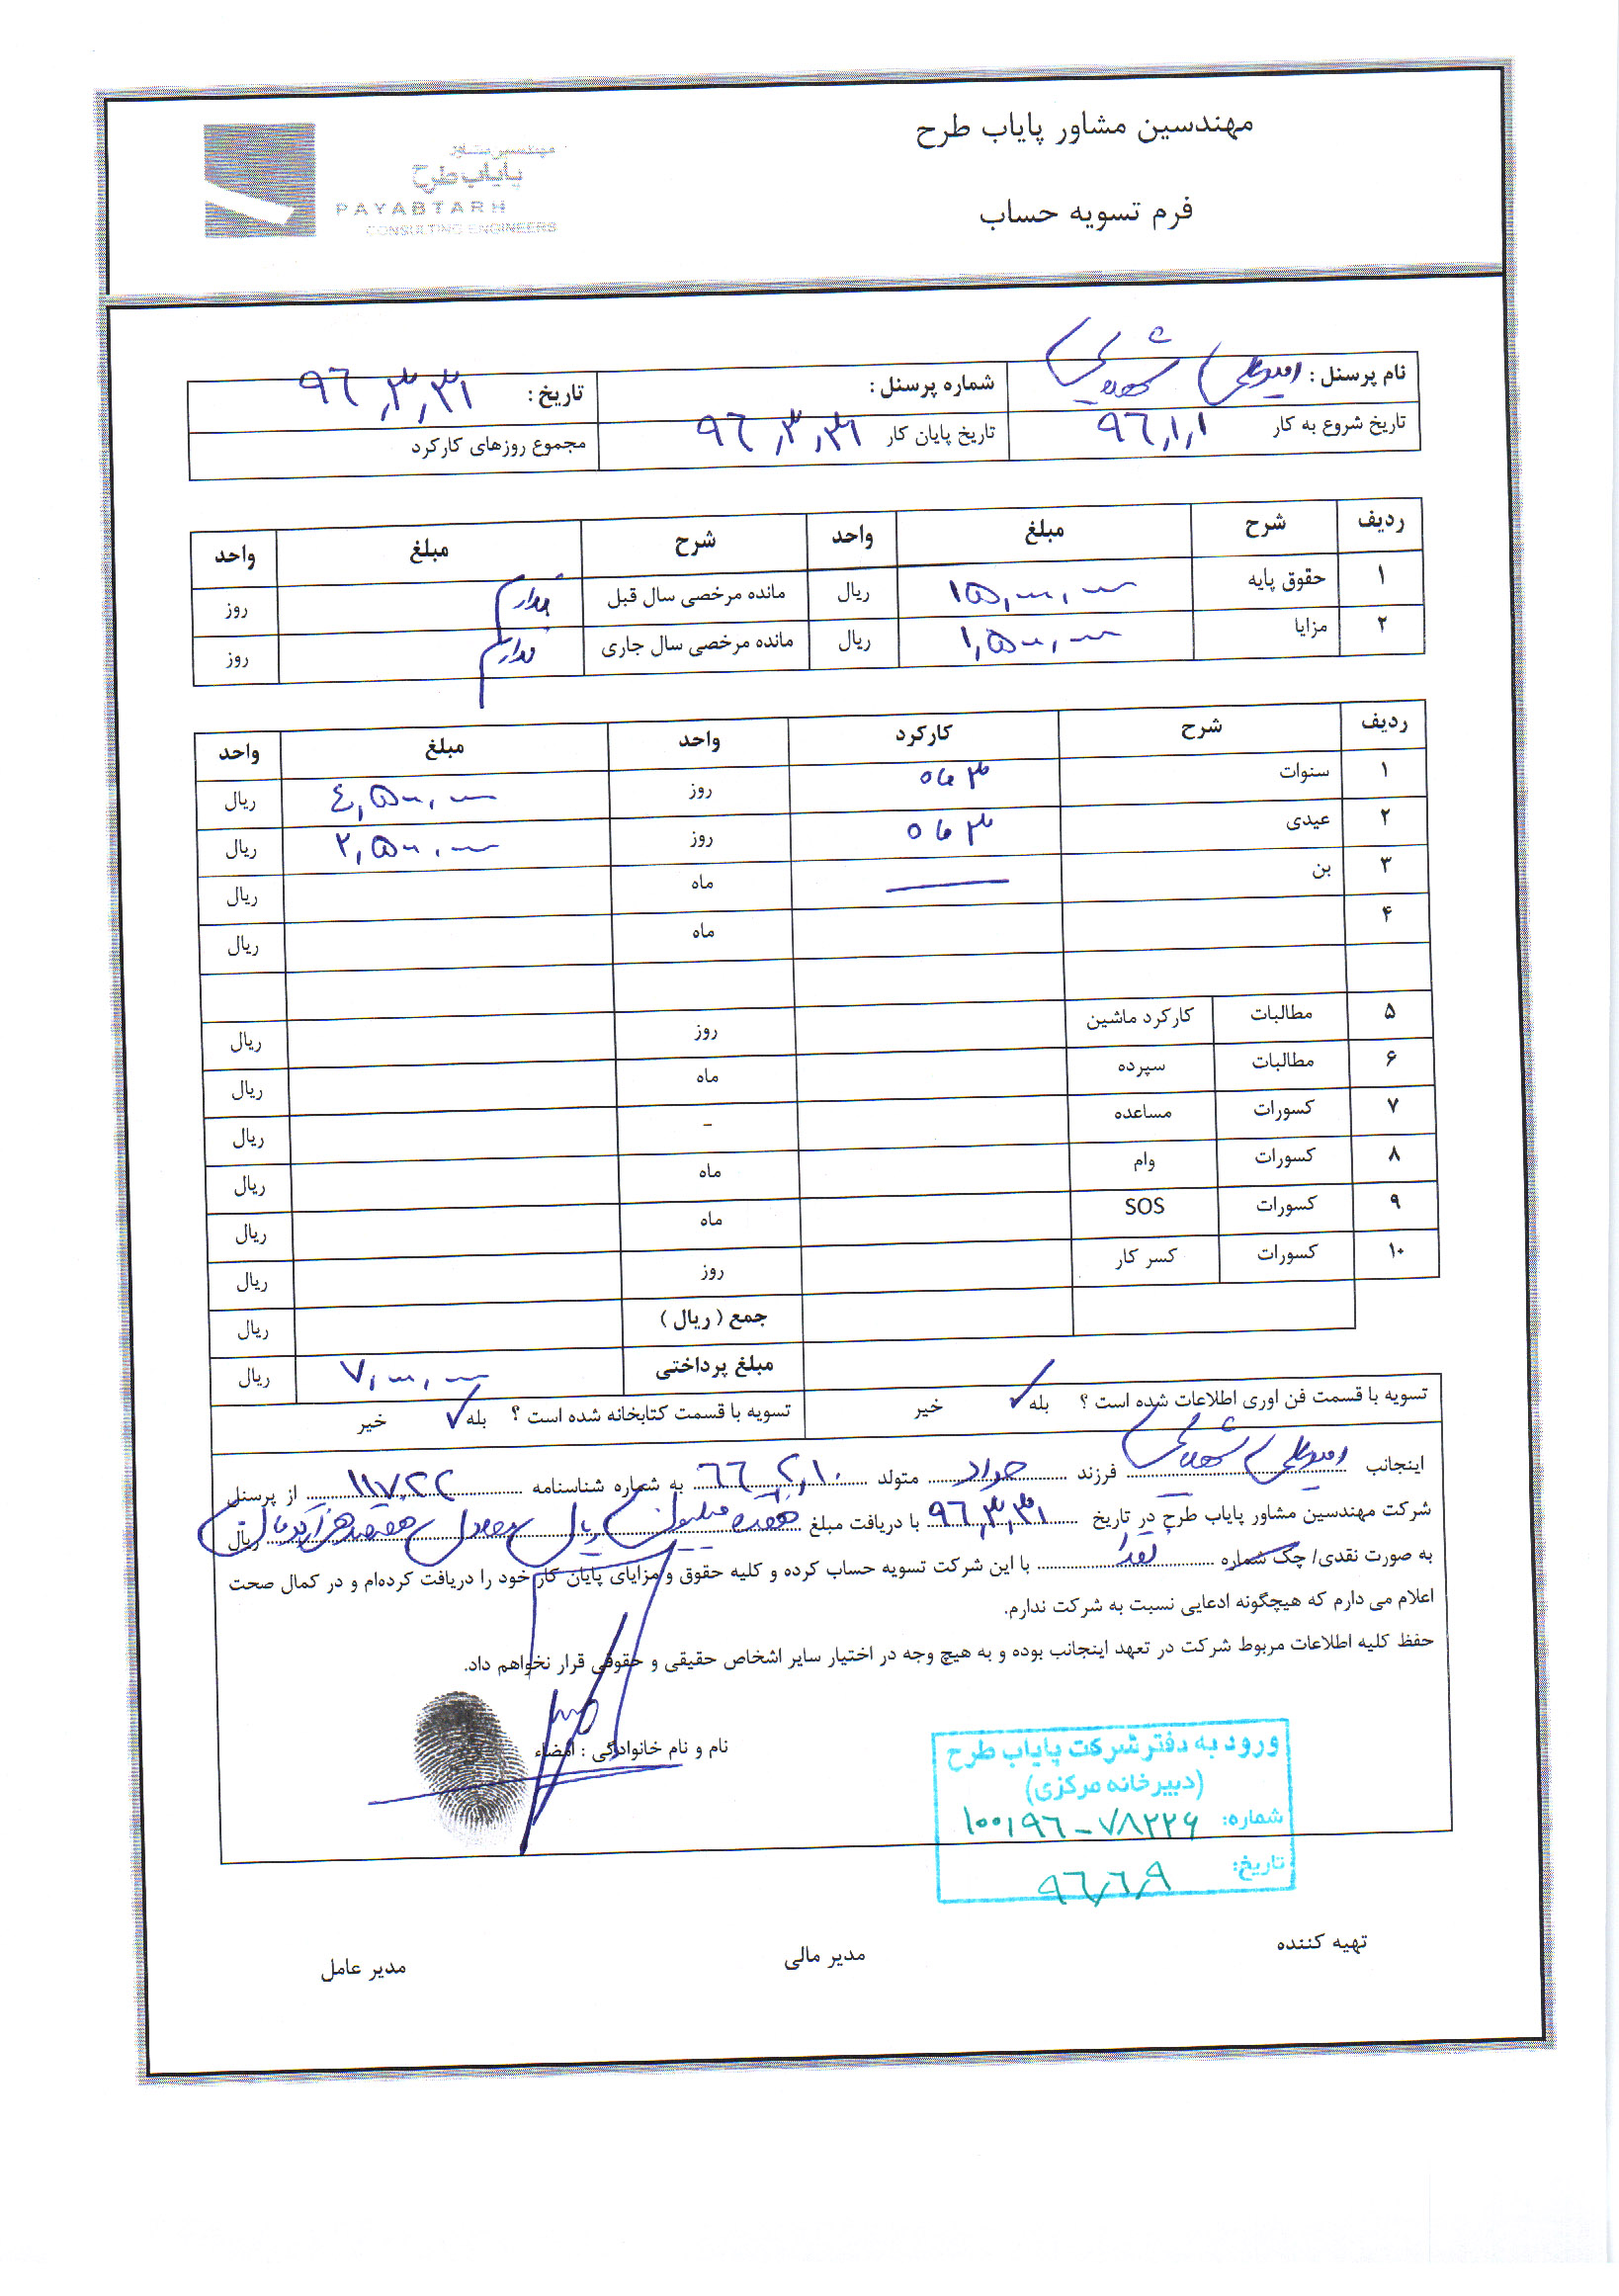 مهندسین مشاور پایاب طرح
مهندسین مشاور
پایاب طرح
PAYABTARH
CONSULTING ENGINEERS
فرم تسویه حساب
نام پرسنل : امیرعلی شماره پرسنل : تاریخ : ۹۶,۳,۳۱
تاریخ شروع به کار ۹۶,۱,۱ تاریخ پایان کار ۹۶,۳,۳۱ مجموع روزهای کارکرد
ردیف شرح مبلغ واحد شرح مبلغ واحد
۱ حقوق پایه ۱۵,۰۰۰,۰۰۰ ریال مانده مرخصی سال قبل ندارم روز
۲ مزایا ۱,۵۰۰,۰۰۰ ریال مانده مرخصی سال جاری ندارم روز
ردیف شرح کارکرد واحد مبلغ واحد
۱ سنوات ۳ ماه روز ۴,۵۰۰,۰۰۰ ریال
۲ عیدی ۳ ماه روز ۲,۵۰۰,۰۰۰ ریال
۳ بن ماه ریال
۴ ماه ریال
۵ مطالبات کارکرد ماشین روز ریال
۶ مطالبات سپرده ماه ریال
۷ کسورات مساعده - ریال
۸ کسورات وام ماه ریال
۹ کسورات SOS ماه ریال
۱۰ کسورات کسر کار روز ریال
جمع ( ریال ) ریال
مبلغ پرداختی ۷,۰۰۰,۰۰۰ ریال
تسویه با قسمت فن اوری اطلاعات شده است ؟ بله ✓ خیر تسویه با قسمت کتابخانه شده است ؟ بله ✓ خیر
اینجانب امیرعلی فرزند جواد متولد ۶۶,۲,۱۰ به شماره شناسنامه ۱۱۷۰۲۲ از پرسنل
شرکت مهندسین مشاور پایاب طرح در تاریخ ۹۶,۳,۳۱ با دریافت مبلغ میلیون ریال معادل هفتصد هزار تومان ریال
به صورت نقدی/ چک شماره نقدا با این شرکت تسویه حساب کرده و کلیه حقوق و مزایای پایان کار خود را دریافت کرده‌ام و در کمال صحت
اعلام می دارم که هیچگونه ادعایی نسبت به شرکت ندارم.
حفظ کلیه اطلاعات مربوط شرکت در تعهد اینجانب بوده و به هیچ وجه در اختیار سایر اشخاص حقیقی و حقوقی قرار نخواهم داد.
نام و نام خانوادگی : امضاء
ورود به دفتر شرکت پایاب طرح
(دبیرخانه مرکزی)
شماره: ۱۰۰/۹۶-۷۸۲۲۶
تاریخ: ۹۶,۶,۹
تهیه کننده مدیر مالی مدیر عامل